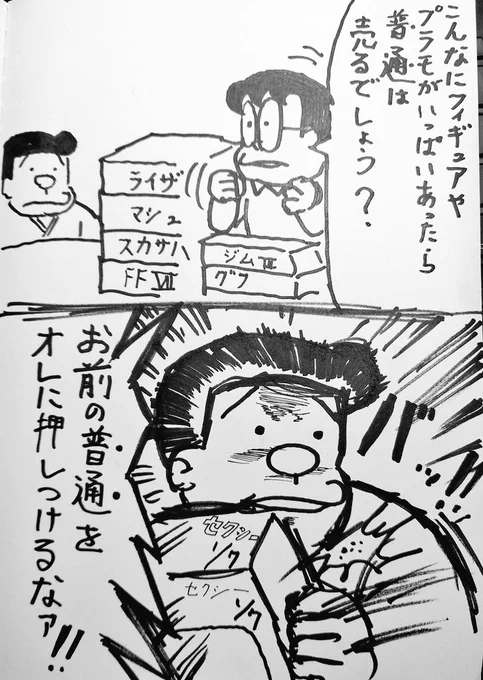 こんなにフィギュアや
プラモがいっぱいあったら
普通は
売るでしょう?
ライザ
マシュ
スカサハ
FFⅦ
ジムⅢ
グフ
お前の普通を
オレに押しつけるなァ!!
バッ
セクシー
ゾク
セクシー
ゾク